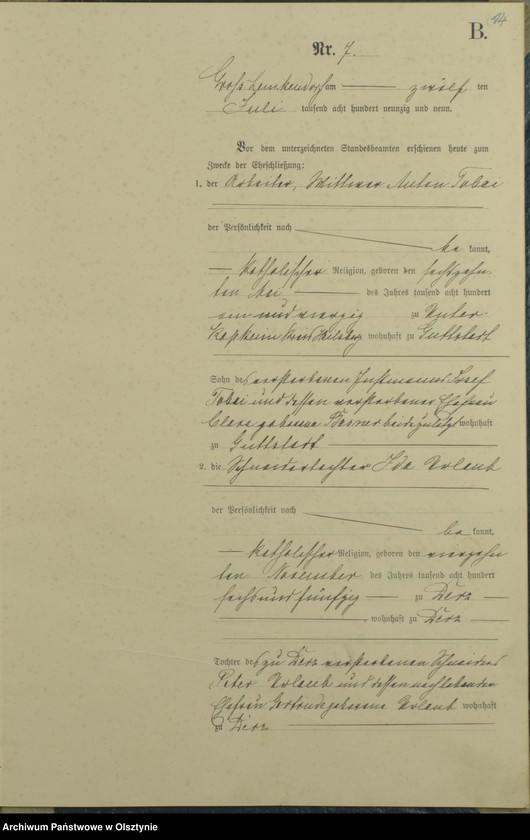 B.
14
Nr. 7.
Groß Lemkendorf am zwölf ten
Juli tausend acht hundert neunzig und neun.
Vor dem unterzeichneten Standesbeamten erschienen heute zum
Zwecke der Eheschließung:
1. der Arbeiter, Wittwer Anton Tobei
der Persönlichkeit nach
be kannt,
katholischer Religion, geboren den sechszehn
ten Mai des Jahres tausend acht hundert
ein und vierzig zu Unter
Kapkeim Kreis Heilsberg wohnhaft zu Guttstadt
Sohn des verstorbenen Instmanns Josef
Tobei und dessen verstorbener Ehefrau
Clara geborene beide zuletzt wohnhaft
zu Guttstadt
2. die Schneidertochter Ida Urlaub
der Persönlichkeit nach
be kannt,
katholischer Religion, geboren den vierzehn
ten November des Jahres tausend acht hundert
sechs und fünfzig zu Derz
, wohnhaft zu Derz
Tochter des zu Derz verstorbenen Schneiders
Peter Urlaub und dessen nachlebender
Ehefrau Gertrude geborene Urlaub wohnhaft
zu Derz
Archiwum Państwowe w Olsztynie